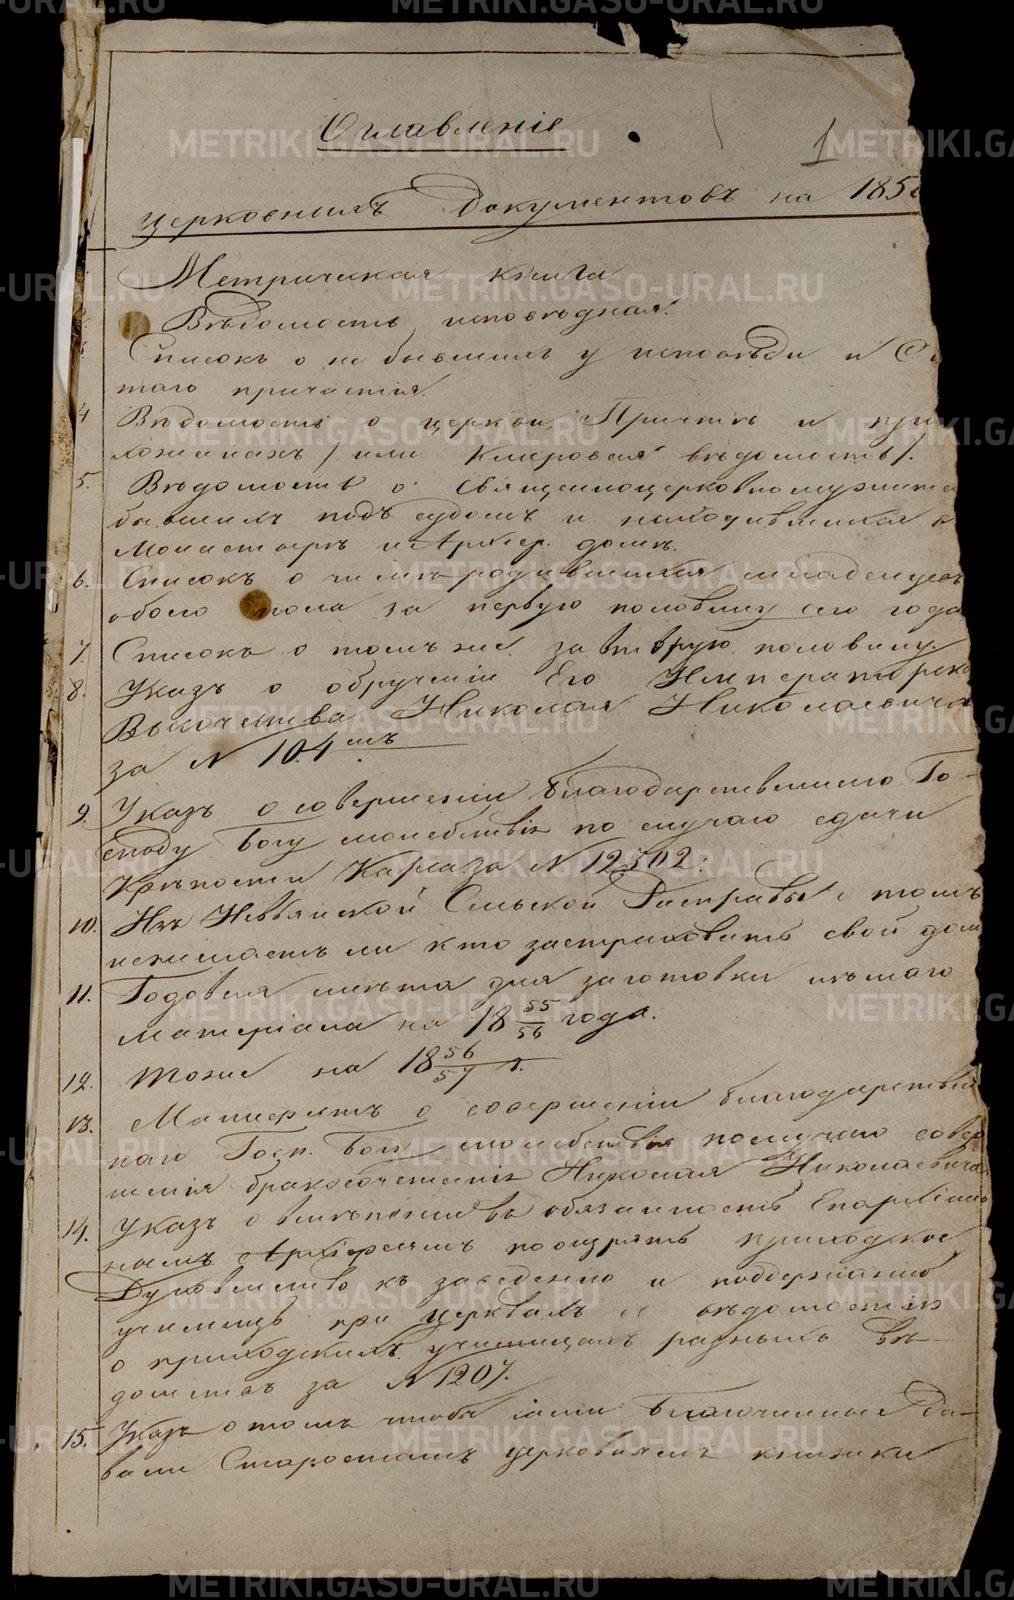 Оглавленіе
1
церковныхъ документовъ на 185
Метрическая книга
Вѣдомость исповѣдная.
Списокъ о не бывшихъ у исповѣди и
таго причастія.
4 Вѣдомость о церкви, Причтѣ и при
хожанахъ / или Клировая вѣдомость /.
5. Вѣдомость о священноцерковнослужите
бывшихъ подъ судомъ и находившихся
Монастырѣ и Архіер. домѣ.
6. Списокъ о числѣ родившихся младенцевъ
обоего пола за первую половину сего года
7. Списокъ о томъ же за вторую половину.
8. Указъ о обрученіи Его Императорска
Высочества Николая Николаевича
за N 104мъ
9. Указъ о совершеніи благодарственнаго Го-
споду Богу молебствія по случаю сдачи
Крѣпости Карса за N 12502.
10. Изъ Невьянской Сельской Расправы о томъ
нежелаетъ ли кто застраховать свой дом
11. Годовая смѣта для заготовки лѣснаго
матеріала на 18 55/56 года.
12. тоже на 18 56/57 г.
13. Манифестъ о совершеніи благодарствен
наго Госп. Богу молебствія послучаю совер
шенія бракосочетанія Николая Николаевича
14. Указъ о вмѣненіи въ обязанность Епархіаль
нымъ Архіереямъ поощрять приходское
Духовенство къ заведенію и поддержанію
училищъ при церквахъ и вѣдомостяхъ
о приходскихъ училищахъ разныхъ вѣ-
домствъ за N 1207.
15. Указъ о томъ чтобы сами Благочинные да-
вали Старостамъ церковнымъ книжки
METRIKI.GASO-URAL.RU